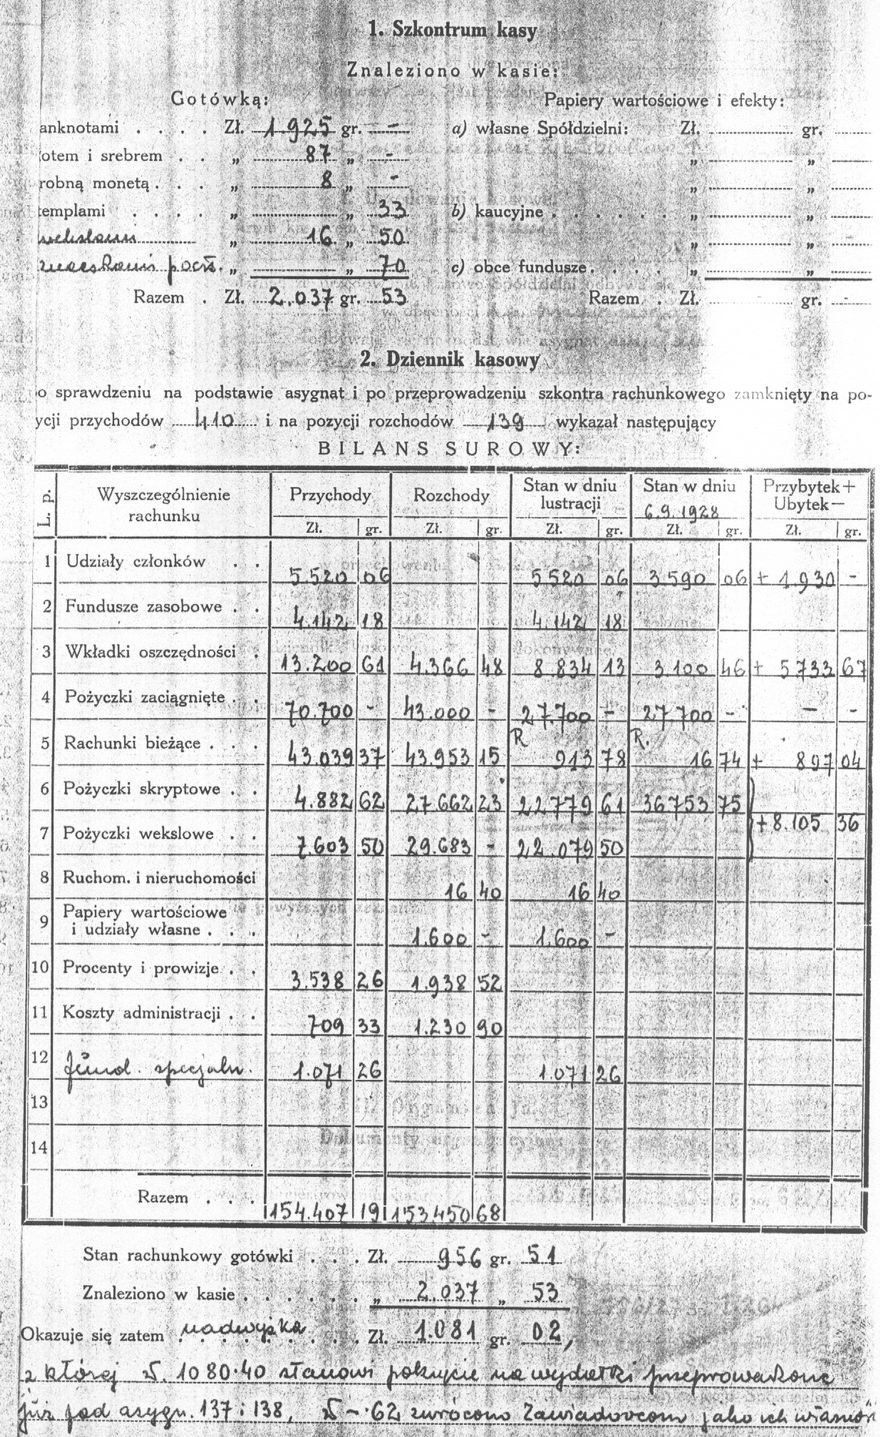 1. Szkontrum kasy
Znaleziono w kasie:
Gotówką: Papiery wartościowe i efekty:
anknotami . . . . Zł. 1925 gr. — a) własne Spółdzielni: Zł. gr.
otem i srebrem . . „ 87 „ - „ „
robną monetą . . . „ 8 „ - „ „
templami . . . . „ „ 33 b) kaucyjne . . . . . . „ „
wekslami „ 16 „ 50 „ „
poczt. „ „ 70 c) obce fundusze . . . . „ „
Razem . Zł. 2.037 gr. 53 Razem . Zł. gr. -
2. Dziennik kasowy
o sprawdzeniu na podstawie asygnat i po przeprowadzeniu szkontra rachunkowego zamknięty na po-
ycji przychodów 410 i na pozycji rozchodów 139 wykazał następujący
BILANS SUROWY:
L. p. Wyszczególnienie rachunku Przychody Rozchody Stan w dniu lustracji Stan w dniu 6.9.1928 Przybytek + Ubytek —
Zł. gr. Zł. gr. Zł. gr. Zł. gr. Zł. gr.
1 Udziały członków . . 5520 06 5520 06 3590 06 + 1930 -
2 Fundusze zasobowe . . 4.142 18 4.142 18
3 Wkładki oszczędności . 13.200 61 4.366 48 8.834 13 3.100 46 + 5733 67
4 Pożyczki zaciągnięte . . 70.700 - 43.000 - 27.700 - 27.700 - - -
5 Rachunki bieżące . . . 43.039 37 43.953 15 R 913 78 R. 16 74 + 897 04
6 Pożyczki skryptowe . . 4.882 62 27662 23 22779 61 36753 75
+ 8.105 36
7 Pożyczki wekslowe . . 7.603 50 29.683 - 22.079 50
8 Ruchom. i nieruchomości 16 40 16 40
9 Papiery wartościowe i udziały własne . . . 1.600 - 1.600 -
10 Procenty i prowizje . . 3.538 26 1.938 52
11 Koszty administracji . . 709 33 1.230 90
12 Fund. specjaln. 1.071 26 1.071 26
13
14
Razem . . . 154.407 19 153.450 68
Stan rachunkowy gotówki . . . Zł. 956 gr. 51
Znaleziono w kasie . . . . . . „ 2.037 „ 53
Okazuje się zatem nadwyżka Zł. 1.081 gr. 02,
z której zł. 1080·40 stanowi pokrycie na wydatki przeprowadzone
już pod asygn. 137 i 138, zł —·62 zwrócono Zawiadowcom jako ich własność